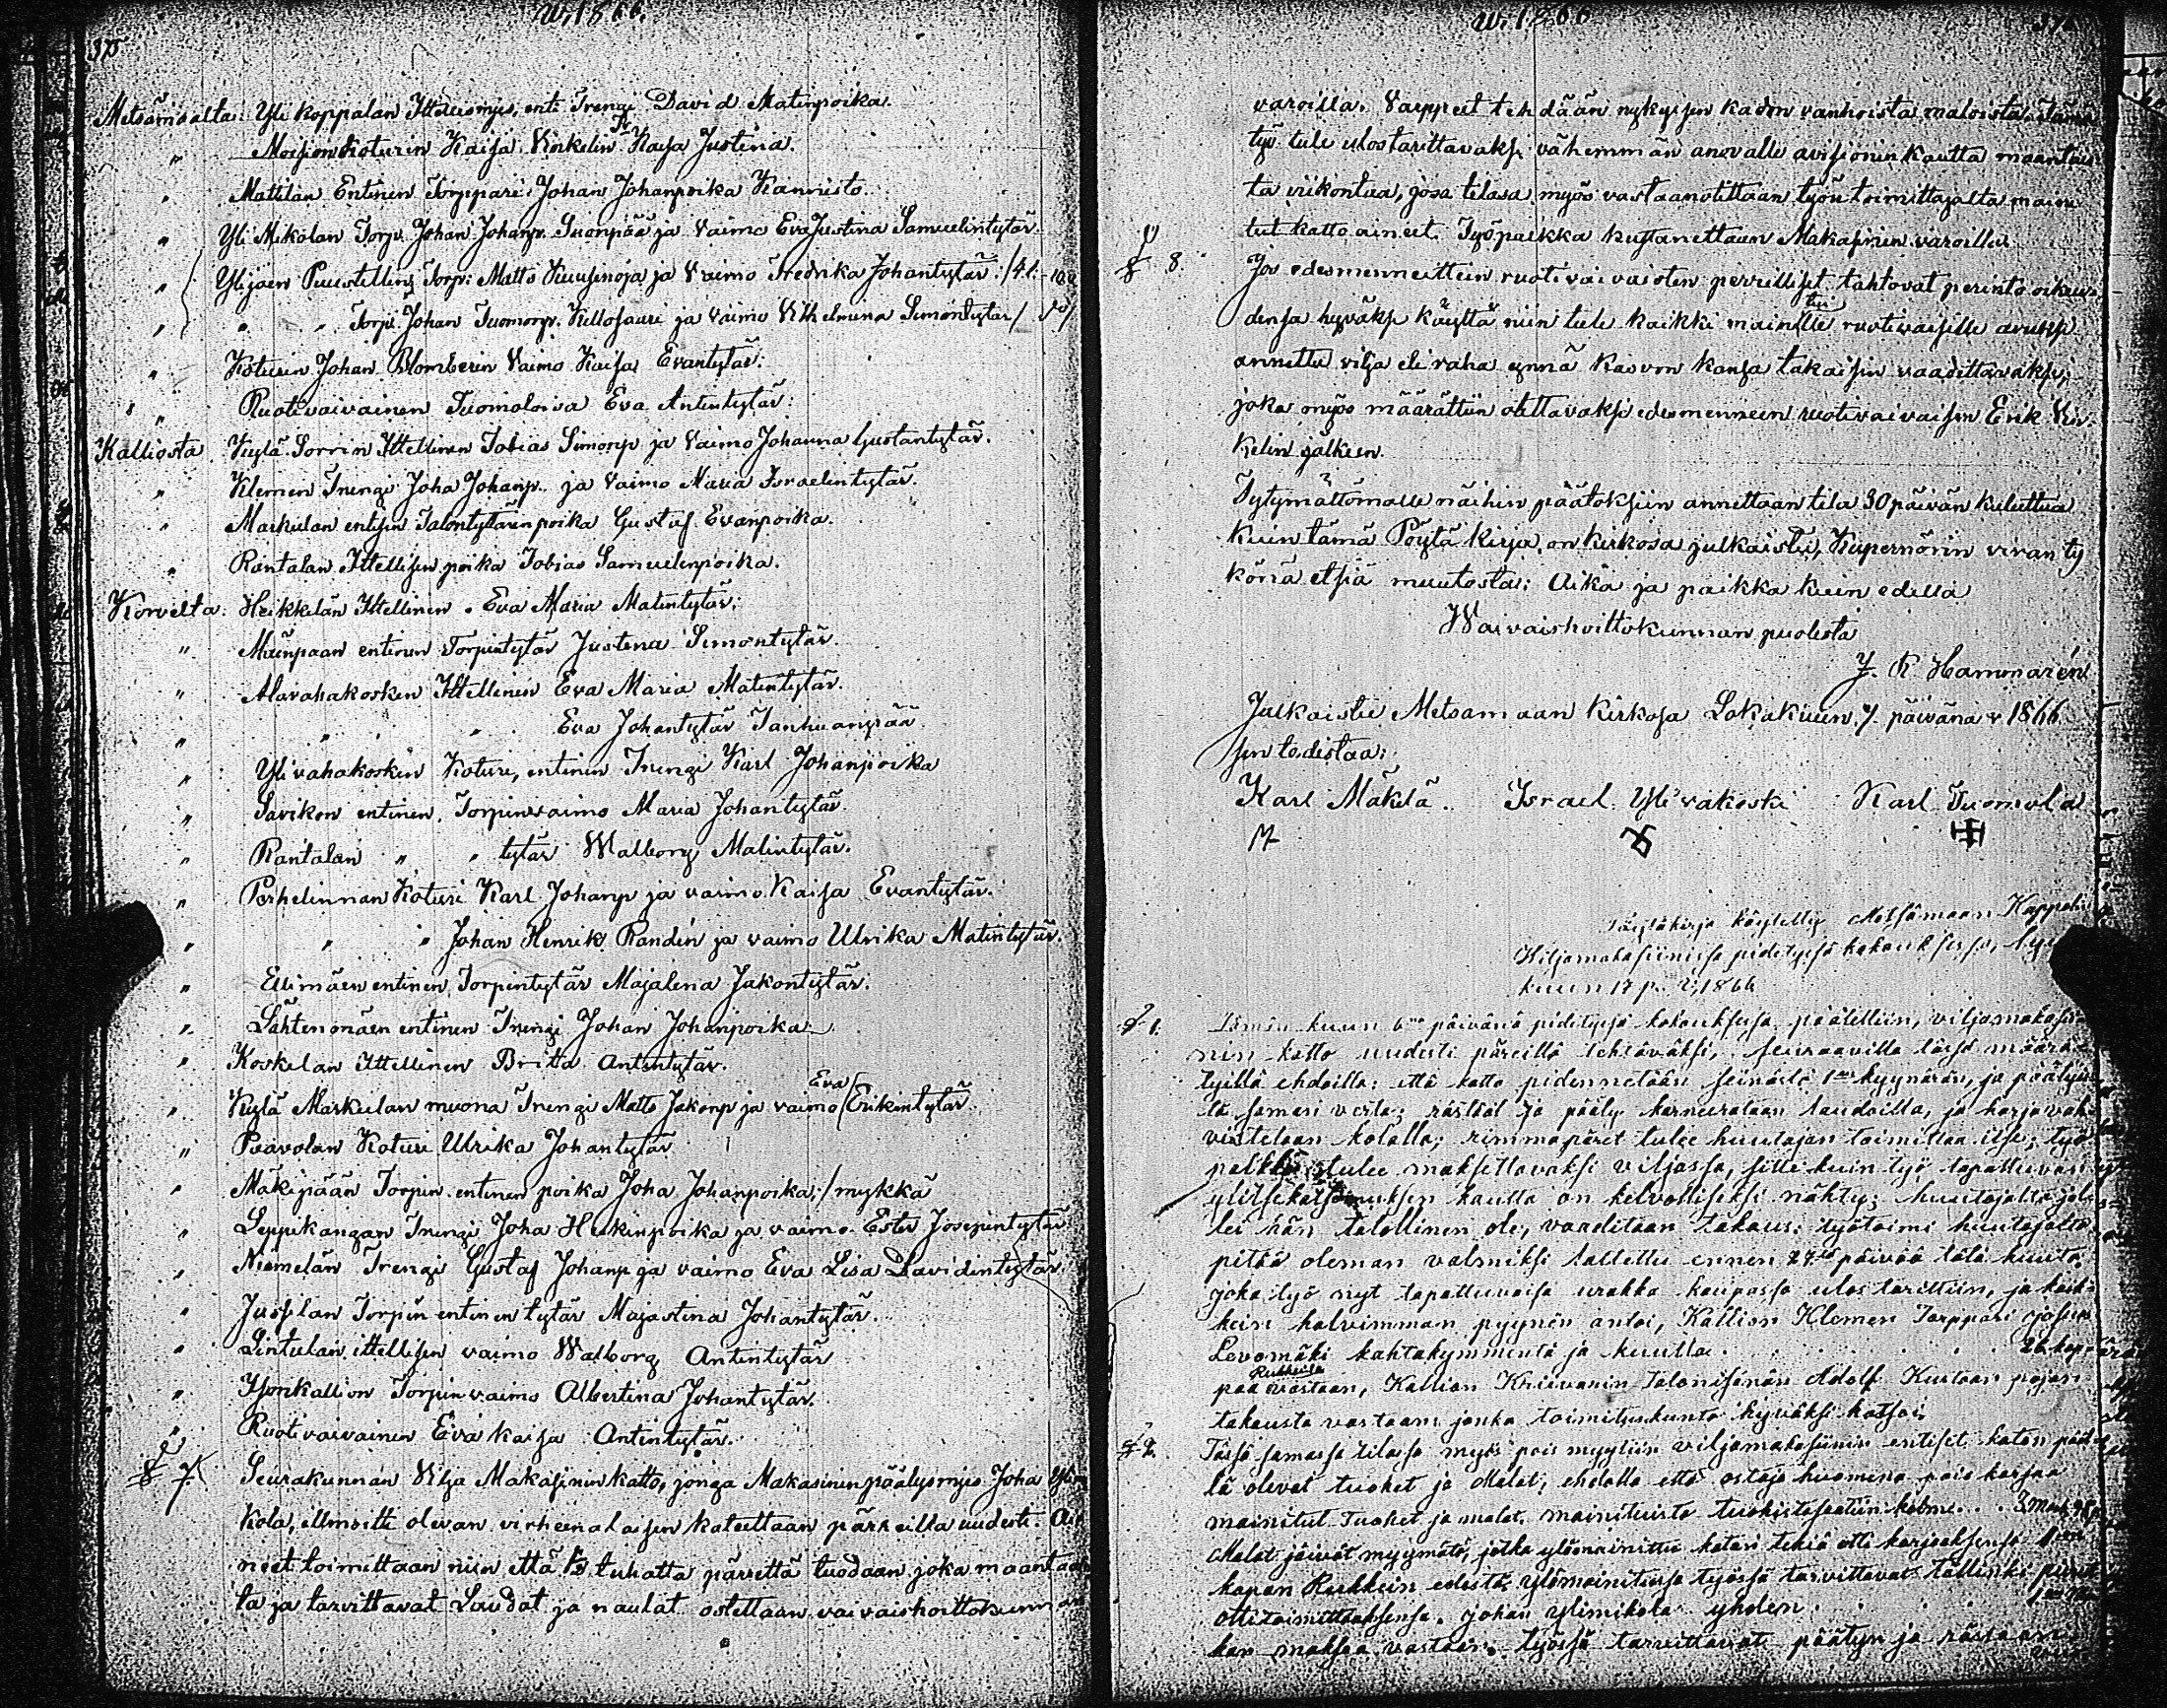 w. 1866.
375
Metsämaalta: Yli koppalan Ittellismjes, enti Trengi David Matinpoika.
" Moision Koturin Kaisa Vinkelin Tr Kaisa Justina.
" Mattilan Entinen Torppari Johan Johanpoika Kannisto.
" Yli Mikolan Torp. Johan Johanp. Suonpää ja Vaimo Eva Justina Samuelintytär.
" Ylijoen Puustellin Torp: Matts Kuusenoja ja Vaimo Fredrika Johantytär.
" " " Torp. Johan Tuomonp. Kellosaari ja Vaimo Vilhelmina Simontytär
" Koturin Johan Blomberin Vaimo Kaisa Evantytär.
" " Ruotivaivainen Tuomoloisa Eva Antintytär:
Kalliosta. Kylä Sorrin Ittellinen Tobias Simonp ja Vaimo Johanna Gustantytär.
" Klemen Trengi Joha Johanp. ja Vaimo Maria Israelintytär.
" Markulan entisen Talontytären poika Gustaf Evanpoika.
" Rantalan Ittellisen poika Tobias Samuelinpoika.
Korvelta: Heikkilän Ittellinen. Eva Maria Matintytär:
" Mäenpään entinen Torpintytär Justina Simontytär.
" Alavahakosken Ittellinen Eva Maria Matintytär.
" " " Eva Johantytär Tanhuanpää.
" Ylivahakosken Koturi, entinen Trengi Karl Johanpoika
" Savikon entinen Torpinvaimo Maria Johantytär.
" Rantalan " " tytär Walborg Matintytär.
" Perhelinnan Koturi Karl Johanp ja vaimo Kaisa Evantytär.
" " " Johan Henrik Randen ja vaimo Ulrika Matintytär.
" Ellimäen entinen Torpintytär Majalena Jakontytär.
" Lähtenmäen entinen Trengi Johan Johanpoika
" Koskelan Ittellinen Britta Antintytär.
" Kylä Markulan muona Trengi Matts Jakonp ja vaimo Eva Erikintytär
" Paavolan Koturi Ulrika Johantytär
" Mäkipään Torpin entinen poika Joha Johanpoika / mykkä
" Leppikangan Trengi Joha Heikinpoika ja vaimo Ester Josepintytär
" Niemelän Trengi Gustaf Johanp ja vaimo Eva Lisa Davidintytär
" Jussilan Torpin entinen tytär Majastina Johantytär.
" Lintulan ittellisen vaimo Walborg Antintytär
" Isonkallion Torpin vaimo Albertina Johantytär.
" Ruotivaivainen Eva Kaisa Antintytär.
§ 7. Seurakunnan Vilja Makasinin katto, jonga Makasinin päälysmjes Joha Ylimi
kola, illmoitti olevan virheenalaisen kateettaan pärreilla uudesti.
neet toimittaan niin että 12 tuhatta pärrettä tuodaan joka maantaa
ta ja tarvittavat Laudat ja naulat ostettaan vaivaishoittokunnan
w. 1866
varoilla. Varppeet tehdään nykyisen kadon vanhoista maloista. Tämä
työ tule ulostarittavaksi vähemmän anovalle avisionin kautta maantais
ta viikontua, josa tilasa myös vastaanotittaan työn toimittajalta mainu
tut katto aineet. Työpalkka kustanettaan Makasinin varoilla.
§ 8. Jos edesmenneitten ruotivaivaisten perrilliset tahtovat perintö oikeu
densa hyväksi käyttä niin tule kaikki mainitulle ruotivaisille avuksi
annettu vilja eli raha ynnä kasvon kansa takaisin vaadittavaksi;
joka myös määrättiin otettavaksi edesmenneen ruotivaivaisen Erik Vin
kelin jälkeen.
Tytymättömälle näihin päätöksiin annettaan tila 30 päivän kuluttua
kuin tämä Pöytä Kirja on kirkosa julkaistu, Kupernörin viran ty
könä etsiä muutosta: Aika ja paikka kuin edellä
Waivaishoittokunnan puolesta
J. R Hammarén
Julkaistu Metsämaan kirkosa Lokakuun 7. päivänä v 1866
sen todistaa:
Karl Mäkilä. Israel Ylivakoski Karl Tuomola
Pöytäkirja käytetty Metsämaan Kappeli
Viljamakasiinissa pidetyssä kokouksessa,
kuun 17 p. v, 1866
§ 1. Tämän kuun 6na päivänä pidetyssä kokouksessa päätettiin, viljamakasi
nin katto uudesti päreillä tehtäväksi, seuraavilla tässä määrä
tyillä ehdoilla: että katto pidennetään seinästä 1 kyynärän, ja päätys
tä samasi verta; räystäät ja pääty karneerataan laudoilla, ja harjavah
vistetaan kotalla; rimmapäret tulee huutajan toimittaa itse; työ
palkka tulee maksettavaksi viljassa, sitte kuin työ tapattuvan
ylitsekatsomuksen kautta on kelvolliseksi nähty; huutajalta jol
lei hän talollinen ole, vaaditaan takaus: työtoimi huutajalta
pitää oleman valmiksi laitettu ennen 27tä päivää tätä kuuta.
joka työ nyt tapattuvaisa urakka kaupassa ulos tarittiin, ja kaik
kein halvimman pyynön antoi, Kallion Klemen Torppari Josua
Levomäki kahtakymmentä ja kuutta . . . . . . 26 kap
paa Rukkeita vastaan, Kallion Kniivarin Talonisänän Adolf Kustaan pojan
takausta vastaan jonka toimituskunta hyväksi katsoi
§ 2. Tässä samassa tilassa myös pois myytiin viljamakasiinin entiset katon pääl
lä olevat tuohet ja Malat, ehdolla että ostaja huomena pois korjaa
mainitut Tuohet ja malat, mainituista tuohista saatiin kolme . . 3 mark
Malat jäivät myymätä, jotka ylösmainittu katon tekiä otti korjataksensa
kapan Rukkein edestä, ylömainitussa työssä tarvittavat Tällinki
otti toimittaaksensa Johan Ylimikola yhden
kan maksaa vastaan. Työssä tarvittavat päätyn ja räystään